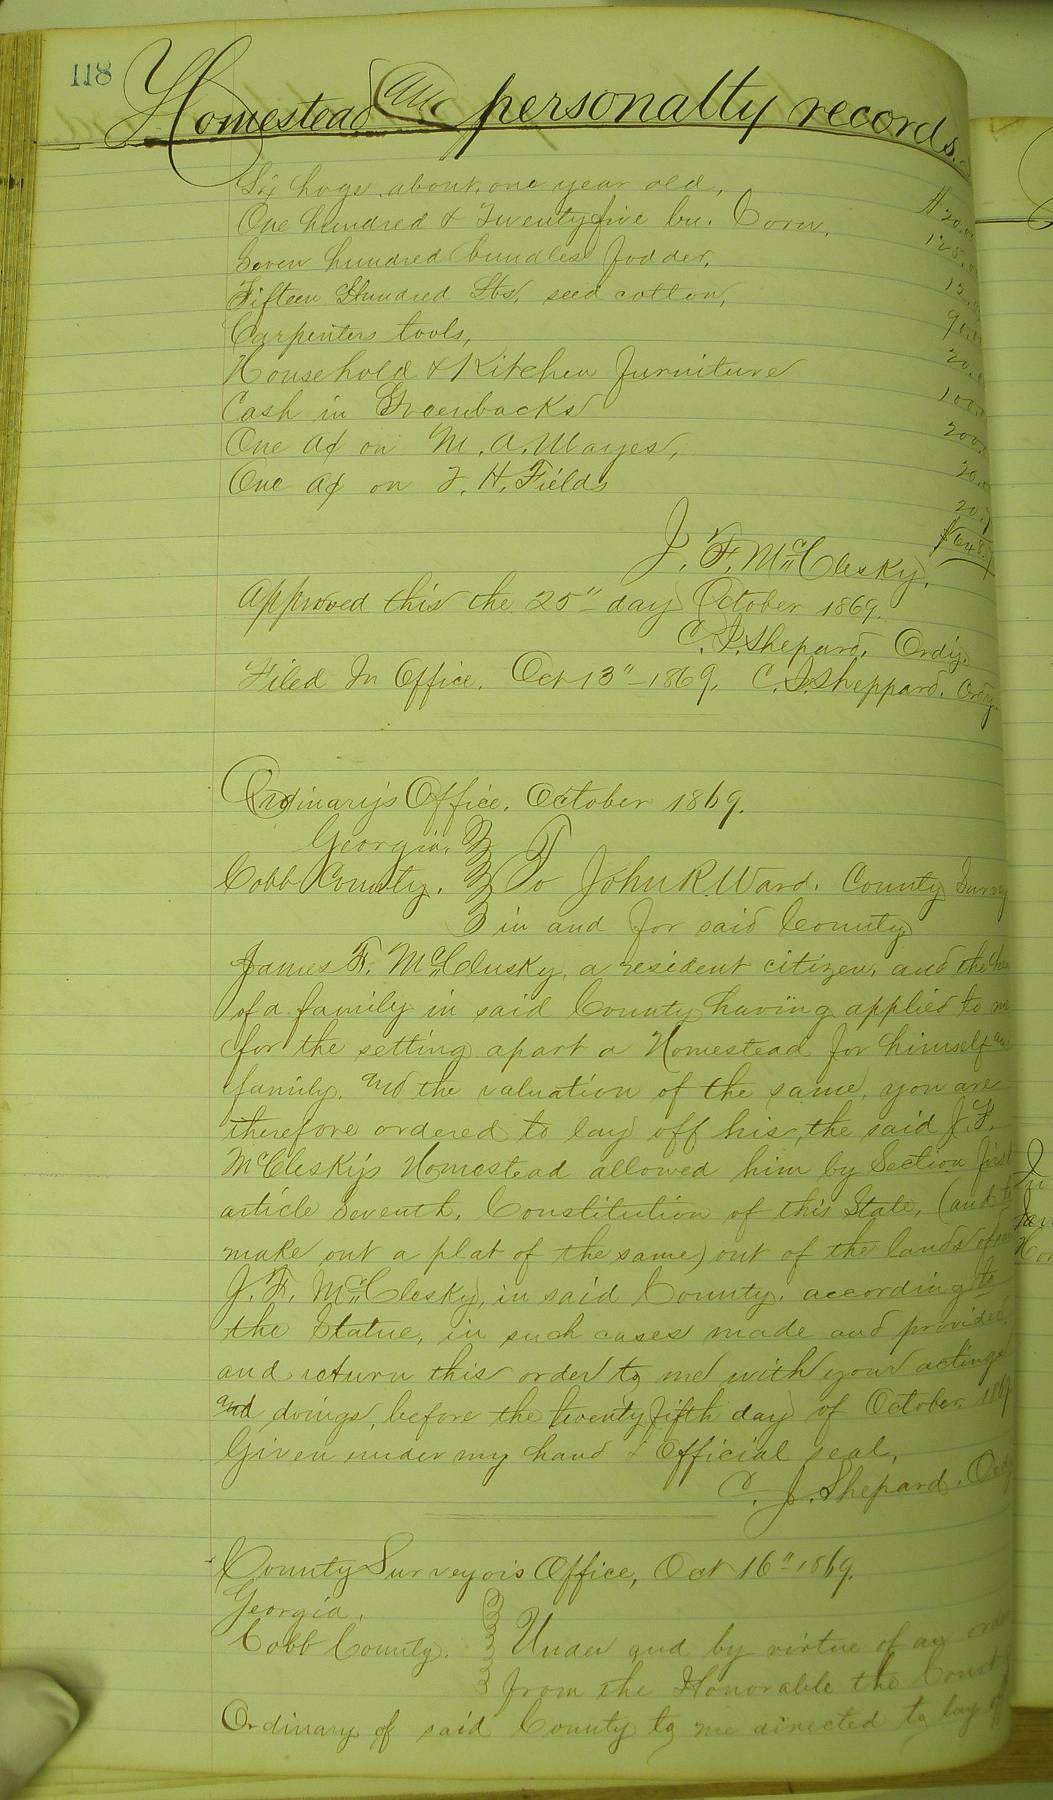 118
Homestead and personalty records.
Six hogs about one year old, $20.
One hundred & Twenty five bu. Corn, 125.
Seven hundred bundles fodder,
Fifteen Hundred Lbs, seed cotton,
Carpenters tools, 20.
Household & Kitchen furniture 100.
Cash in Greenbacks 200.
One a/c on M. A. Mayes, 20.
One a/c on F. H. Fields 20.
J. F. McClesky.
Approved this the 25" day October 1869.
C. J. Shepard, Ordy.
Filed In Office. Oct 13" 1869. C. J. Sheppard. Ordy
Ordinary's Office. October 1869.
Georgia.
Cobb County. To John R. Ward. County
in and for said County
James F. McClusky, a resident citizen, and the
of a family in said County having applied to me
for the setting apart a Homestead for himself and
family, and the valuation of the same, you are
therefore ordered to lay off his, the said J. F.
McClesky's Homestead allowed him by Section first
article Seventh, Constitution of this State, (and to
make out a plat of the same) out of the lands of
J. F. McClesky, in said County, according to
the Statue, in such cases made and provided,
and return this order to me with your actings
and doings, before the twenty fifth day of October 1869
Given under my hand & Official seal,
C. J. Shepard. Ordy
County Surveyor's Office, Oct 16" 1869.
Georgia,
Cobb County. Under and by virtue of an order
from the Honorable the Court
Ordinary of said County to me directed to lay off